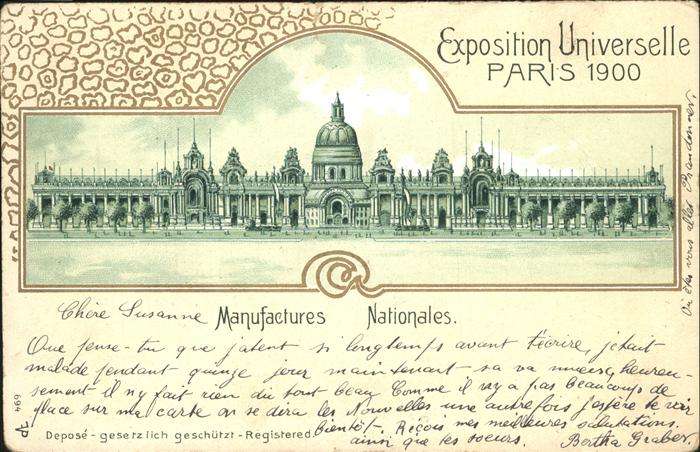 Exposition Universelle
PARIS 1900
Chère Susanne
Manufactures Nationales.
Que pense-tu que jatent si longtemps avant t'écrire, j'etait
malade pendant quinze jour maintenant sa va mieux, heureu-
sement il ny fait rien du tout beau Comme il ny a pas beaucoup de
place sur ma carte on se dira les Nouvelles une autrefois j'espère te voir
bientôt. Reçois mes meilleures salutations.
ainsi que tes soeurs. Bertha Graber.
Deposé - gesetzlich geschützt - Registered.
694
Où êtes vous allés